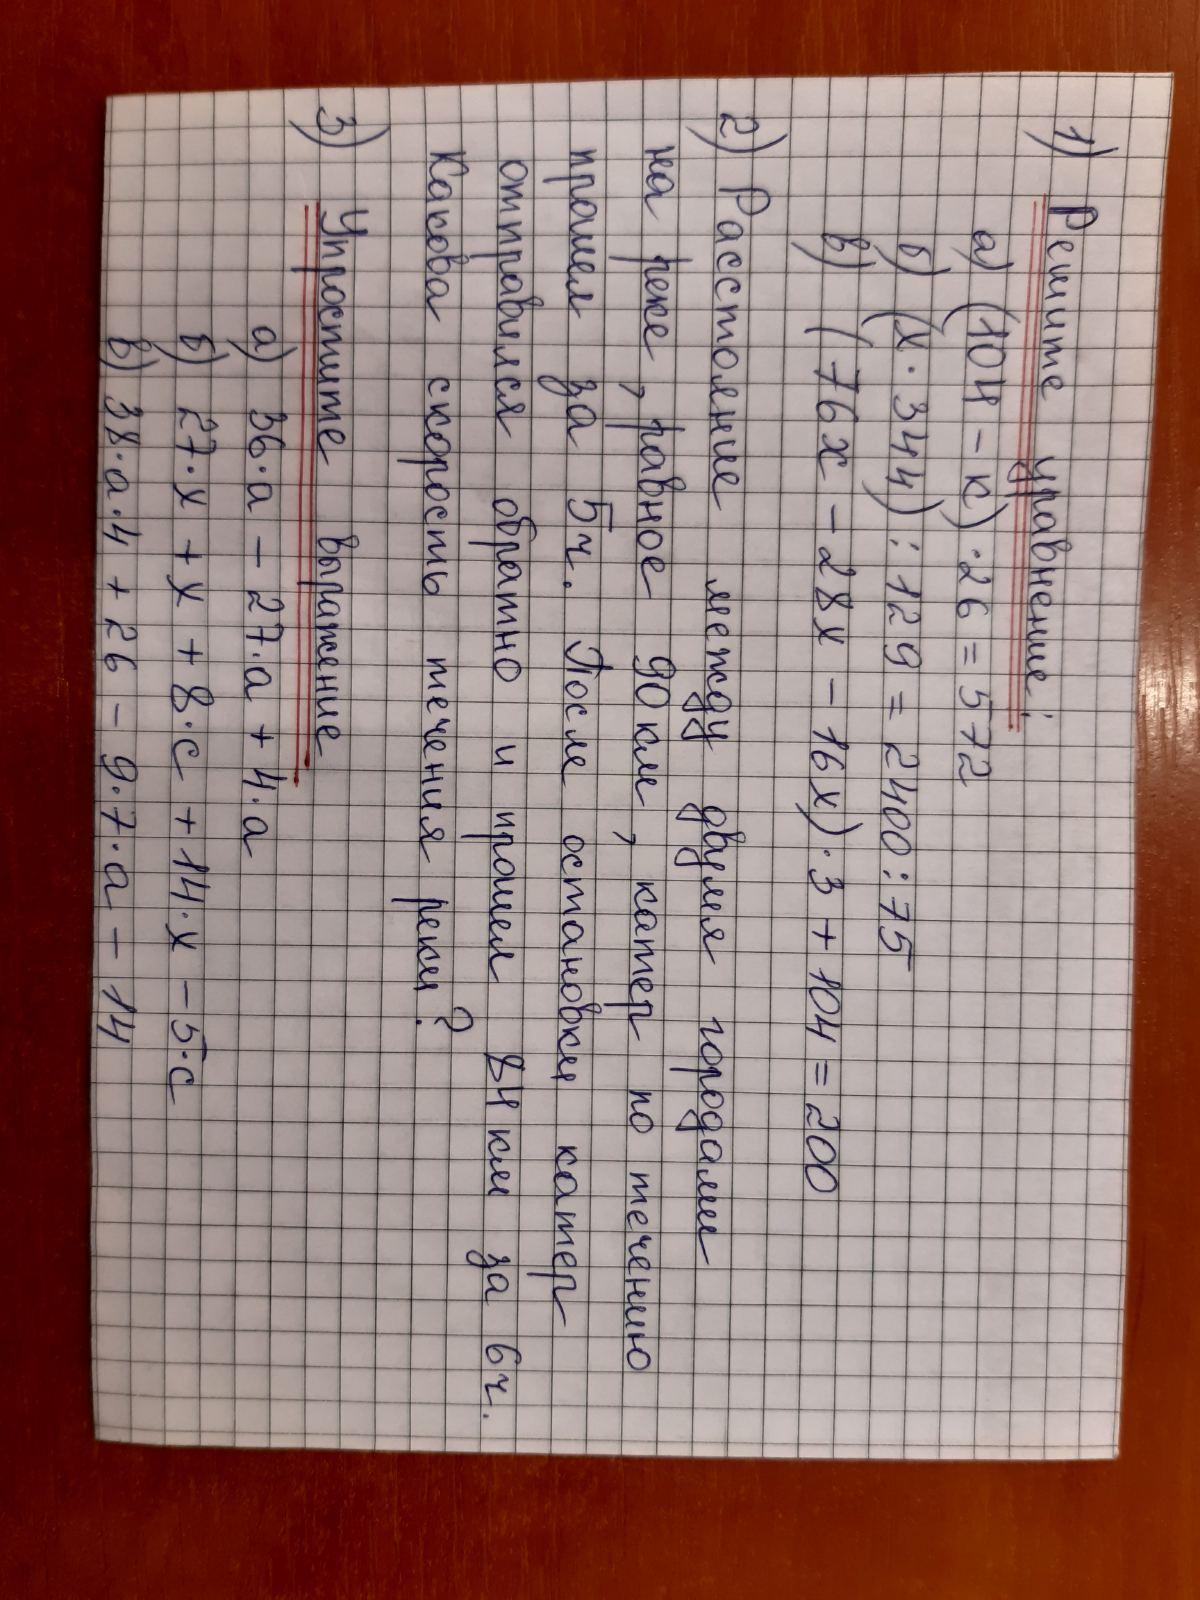 1) Решите уравнение:
а) (104 - к) · 26 = 572
б) (х · 344) : 129 = 2400 : 75
в) (76х - 28х - 16х) · 3 + 104 = 200
2) Расстояние между двумя городами
на реке, равное 90 км, катер по течению
прошел за 5 ч. После остановки катер
отправился обратно и прошел 84 км за 6 ч.
Какова скорость течения реки?
3) Упростите выражение
а) 36·а - 27·а + 4·а
б) 27·х + х + 8·с + 14·х - 5·с
в) 38·а·4 + 26 - 9·7·а - 14